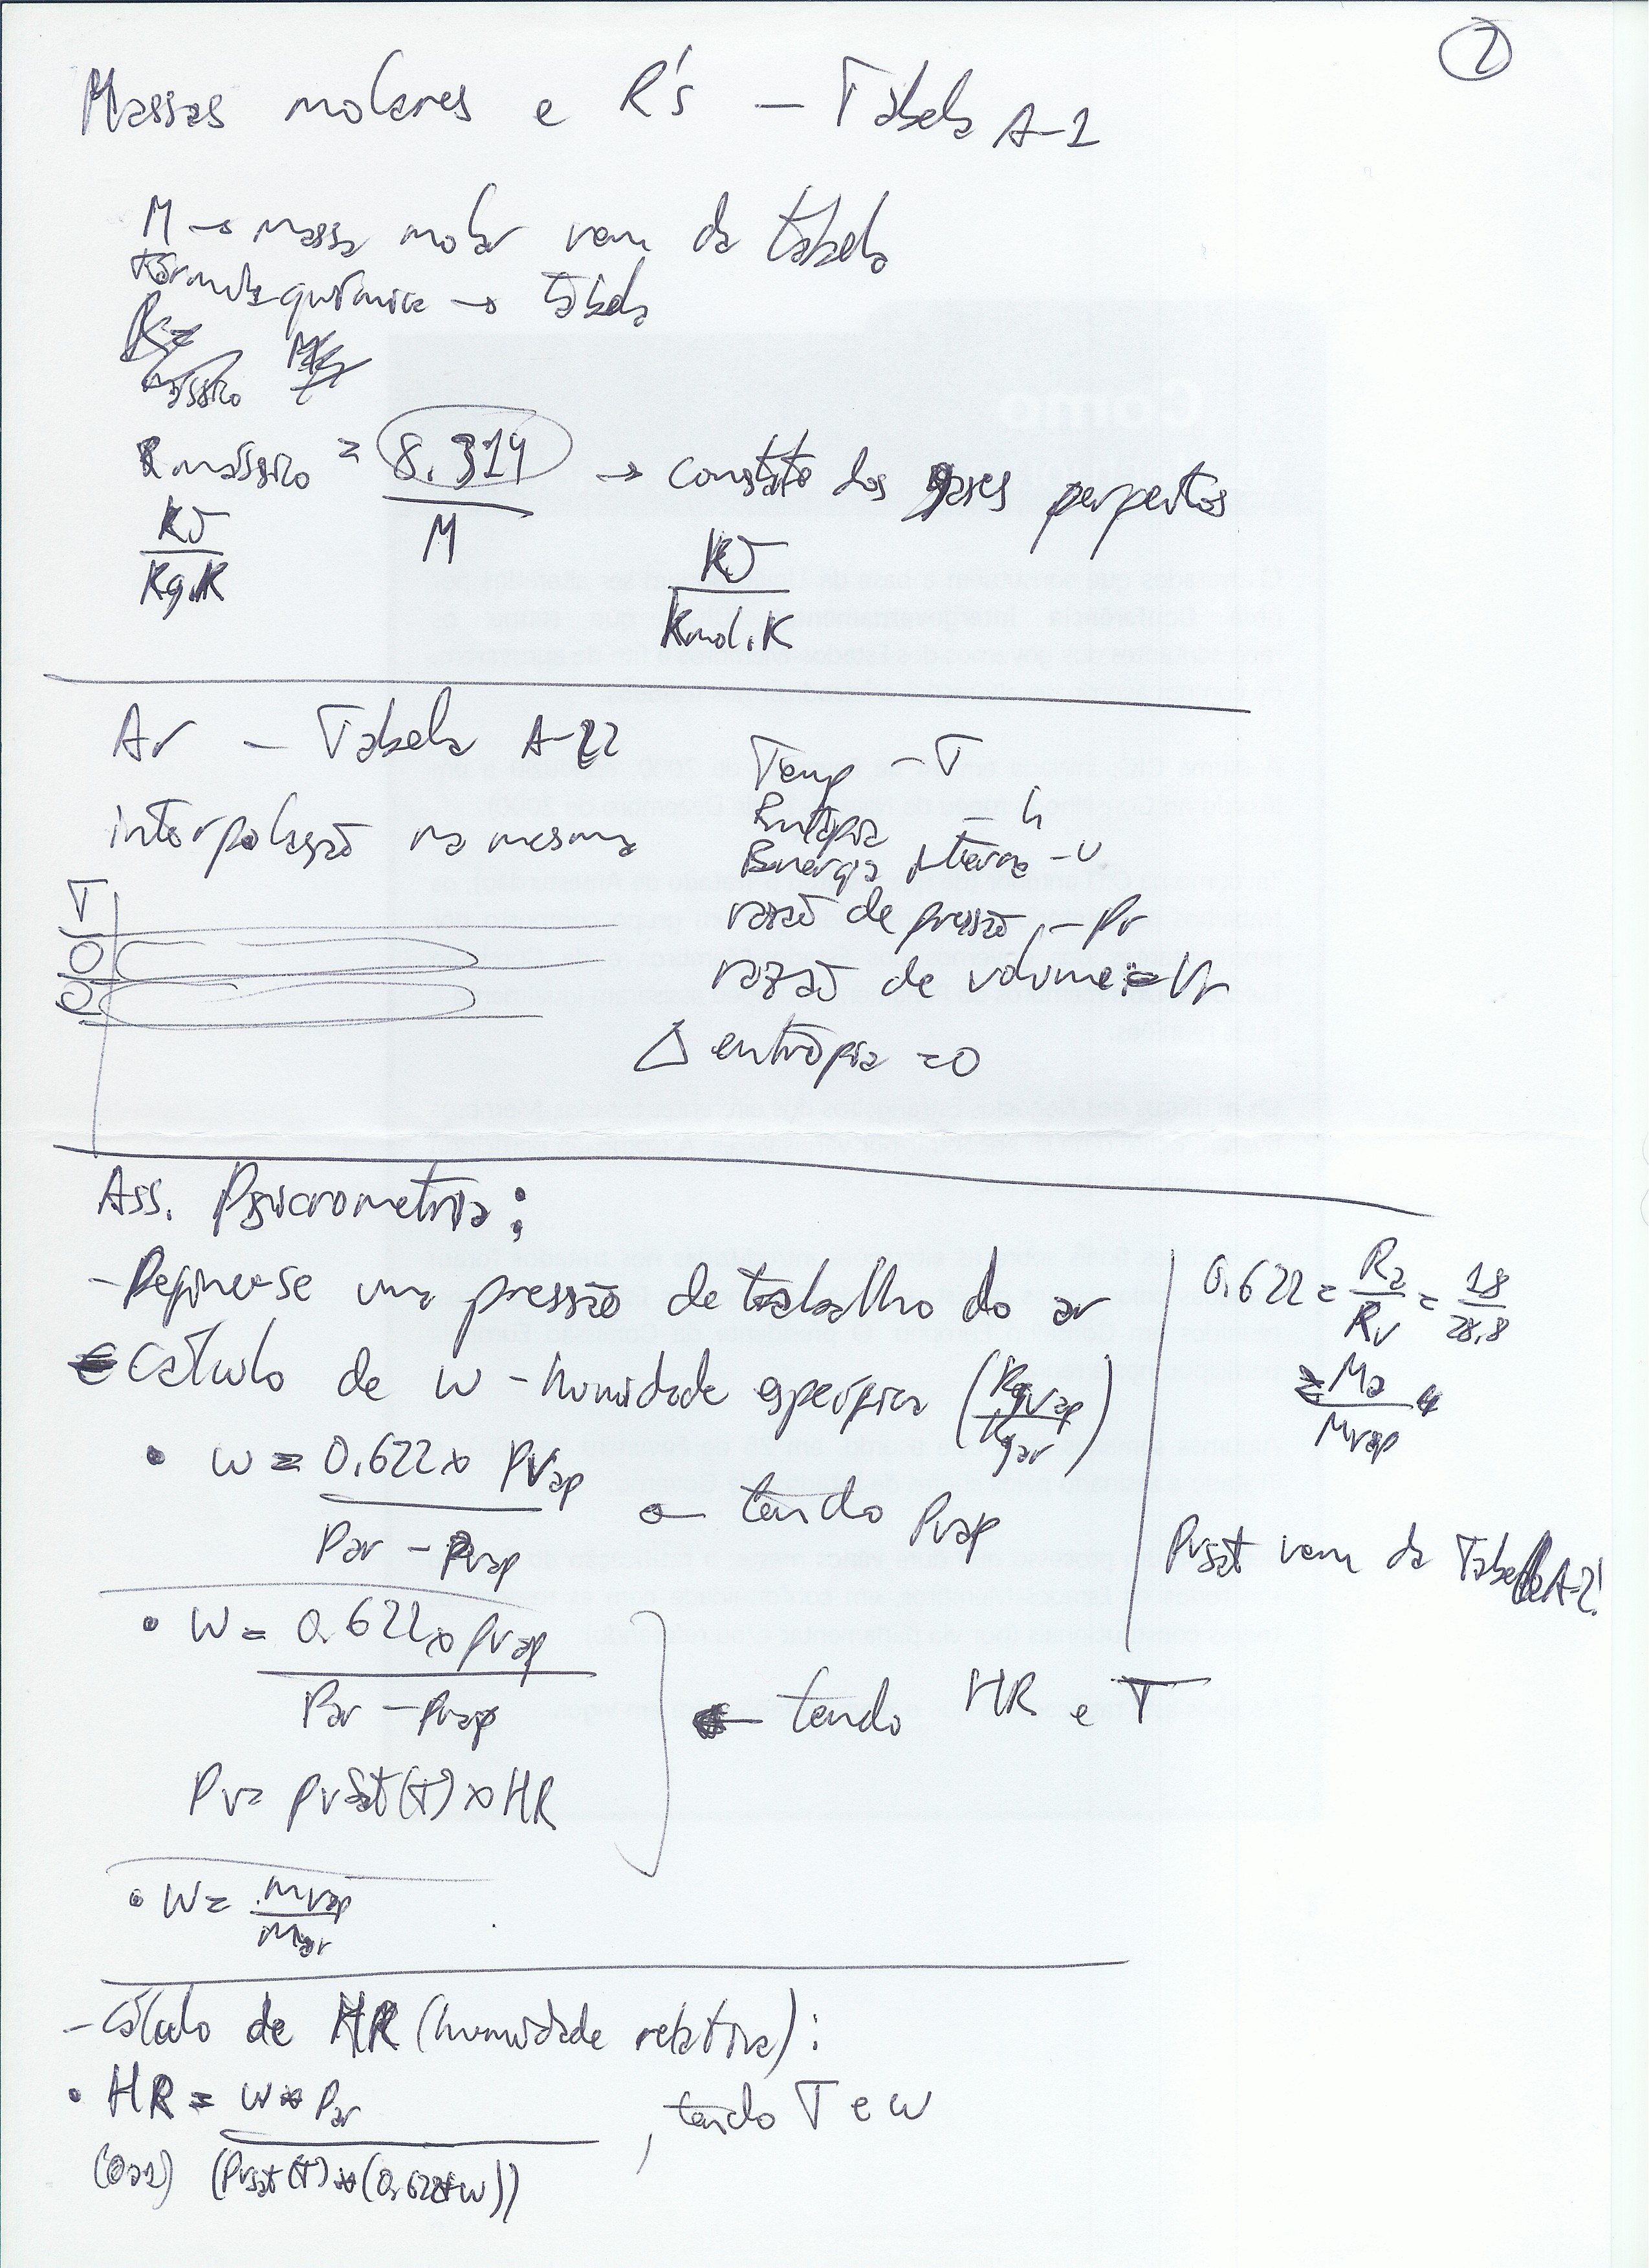 2
Massas molares e R's – Tabela A-1
M → massa molar vem da tabela
fórmula química → tabela
R mássico = 8.314 / M → constante dos gases perfeitos
KJ / Kg.K
KJ / Kmol.K
Ar – Tabela A-22
interpolação na mesma
T
Temp – T
Entalpia – h
Energia interna – u
razão de pressão – Pr
razão de volume = Vr
Δ entrópia = 0
Ass. Psicrometria:
- Define-se uma pressão de trabalho do ar
Cálculo de w – humidade específica (Kgvap / Kgar)
• w = 0.622 x Pvap / Par – Pvap ← tendo Pvap
• w = 0.622 x Pvap / Par – Pvap
Pv = Pvsat(T) x HR
← tendo HR e T
• w = mvap / mar
0.622 = Ra / Rv = 18 / 28,8
= Ma / Mvap
Pvsat vem da Tabela A-2!
- Cálculo de HR (humidade relativa):
• HR = w * Par / (Pvsat(T) * (0.622+w)) , tendo T e w
(0 a 1)